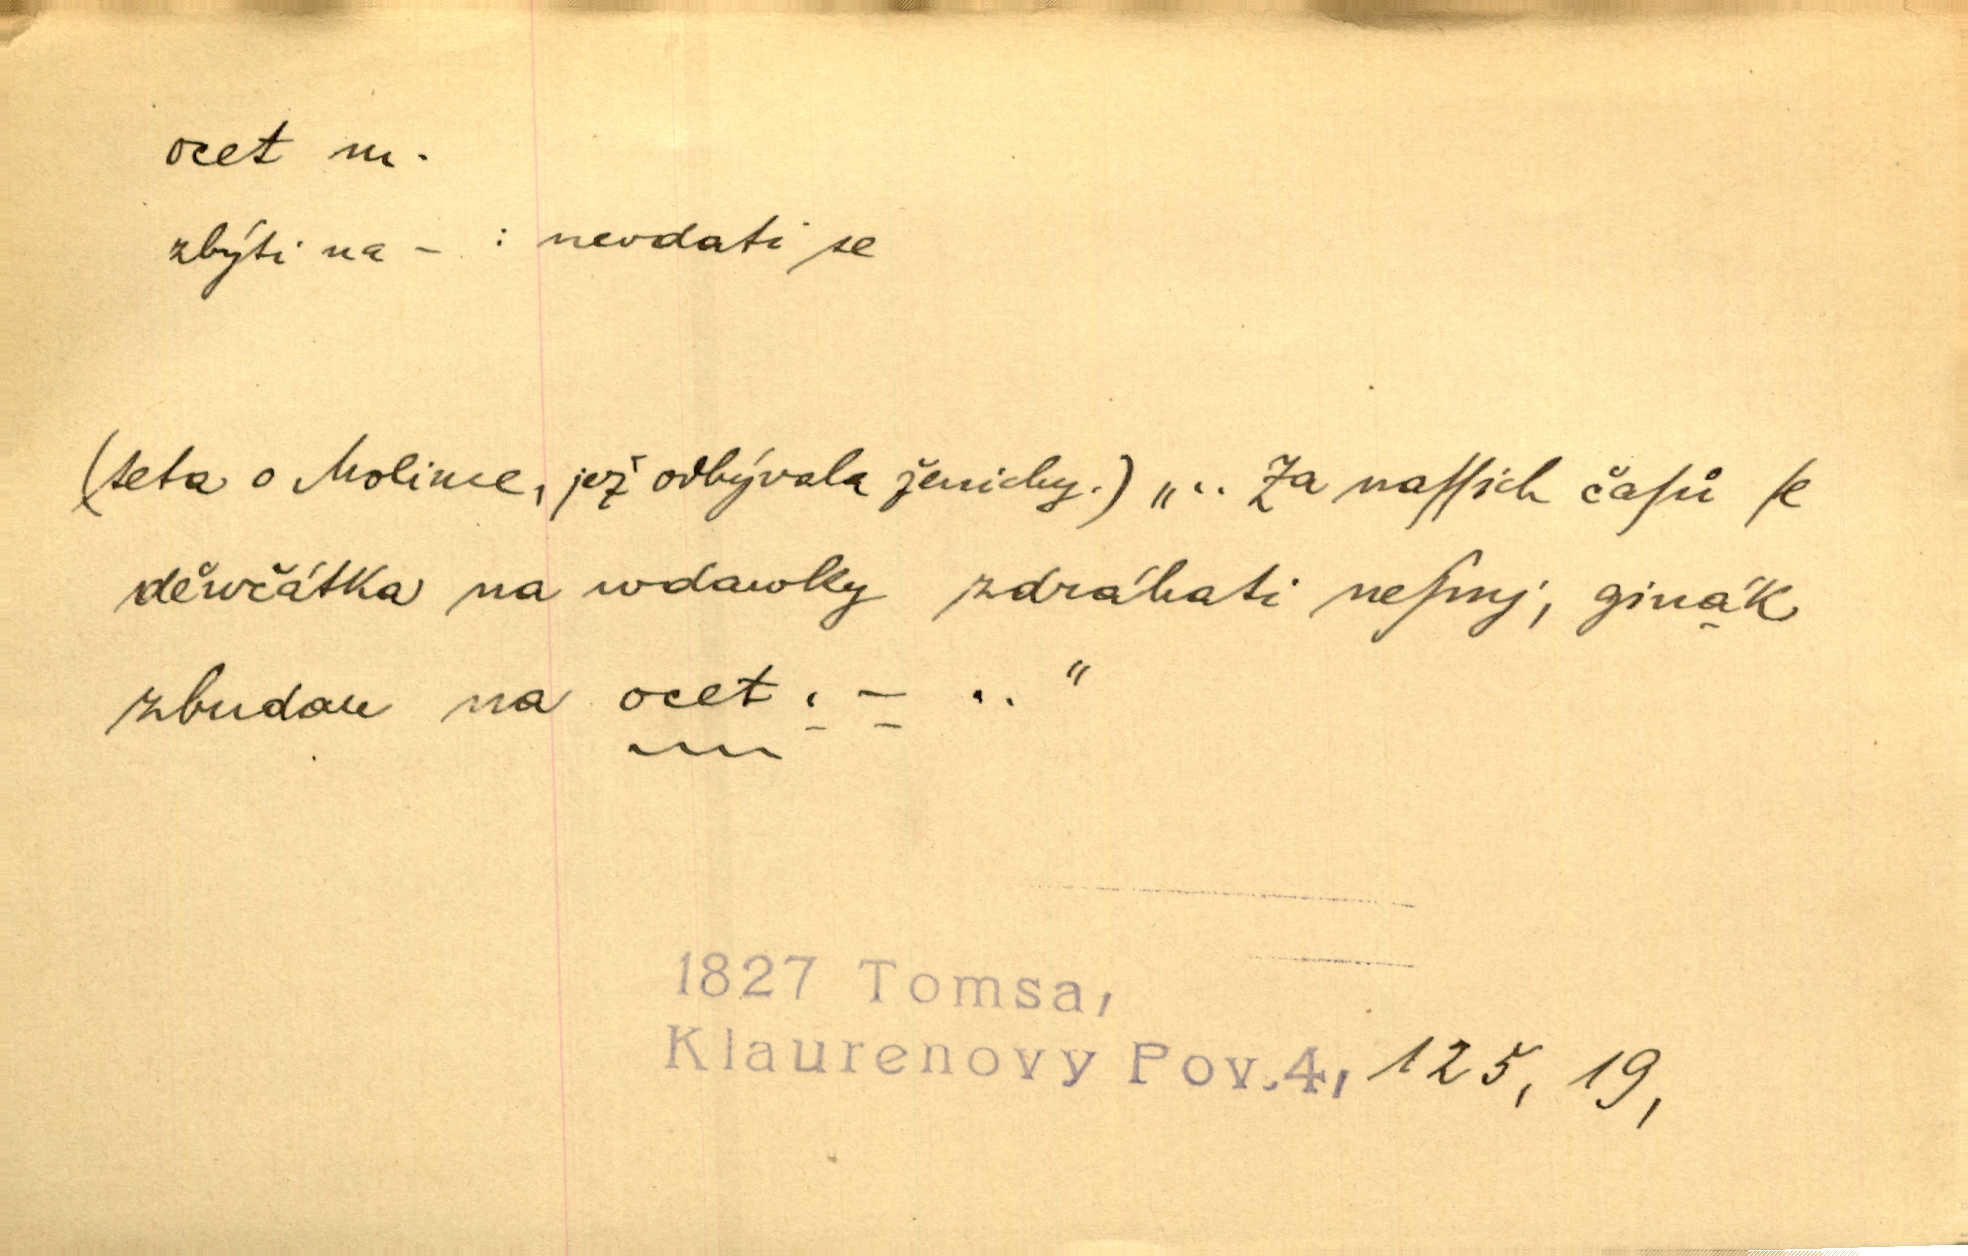 ocet m.
zbýti na – : nevdati se
(teta o Molince, jež odbývala ženichy.) „.. Za naſſich čaſů ſe
děwčátka na wdawky zdráhati neſmj, ginák
zbudau na ocet. – .. “
1827 Tomsa,
Klaurenovy Pov.4, 125, 19,